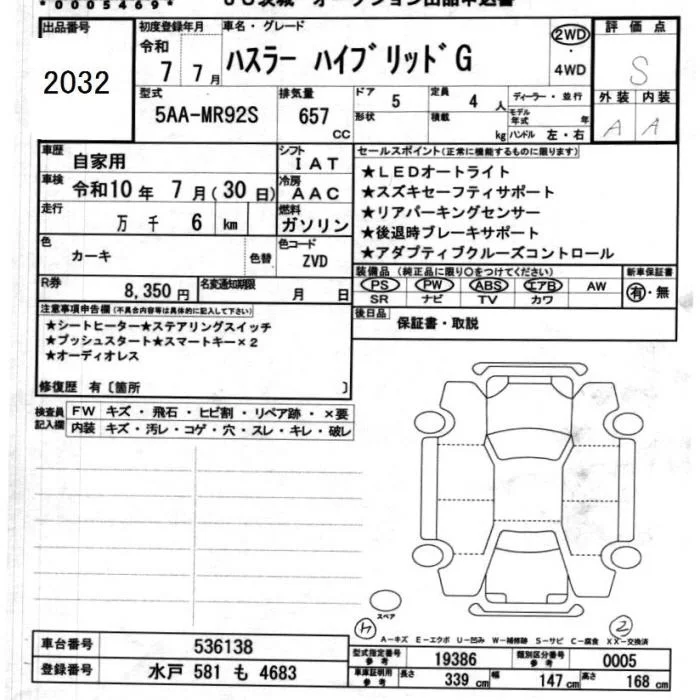 *0005469*
出品番号
2032
初度登録年月
令和
7 7月
車名・グレード
ハスラー ハイブリッドG
2WD
4WD
評価点
S
外装 内装
A A
型式
5AA-MR92S
排気量
657
cc
ドア
5
定員
4 人
形状
積載
kg
ディーラー・並行
モデル年式 年
ハンドル 左・右
車歴
自家用
シフト
IAT
車検
令和10年 7月(30日)
冷房
AAC
走行
万 千 6 km
燃料
ガソリン
色
カーキ
色替
色コード
ZVD
R券
8,350円
名変通知期限
月 日
セールスポイント(正常に機能するものに限ります)
★LEDオートライト
★スズキセーフティサポート
★リアパーキングセンサー
★後退時ブレーキサポート
★アダプティブクルーズコントロール
装備品 (純正品に限り○をつけてください)
PS PW ABS エアB AW
SR ナビ TV カワ
新車保証書
有・無
後日品
保証書・取説
注意事項申告欄(不具合内容等は具体的に記入して下さい)
★シートヒーター★ステアリングスイッチ
★プッシュスタート★スマートキー×2
★オーディオレス
修復歴 有〔箇所 〕
検査員記入欄
FW キズ・飛石・ヒビ割・リペア跡・×要
内装 キズ・汚レ・コゲ・穴・スレ・キレ・破レ
スペア
A-キズ E-エクボ U-凹み W-補修跡 S-サビ C-腐食 XX-交換済
車台番号
536138
登録番号
水戸 581 も 4683
型式指定番号
参考
19386
類別区分番号
参考
0005
車庫証明用
参考
長さ 339 cm
幅 147 cm
高さ 168 cm